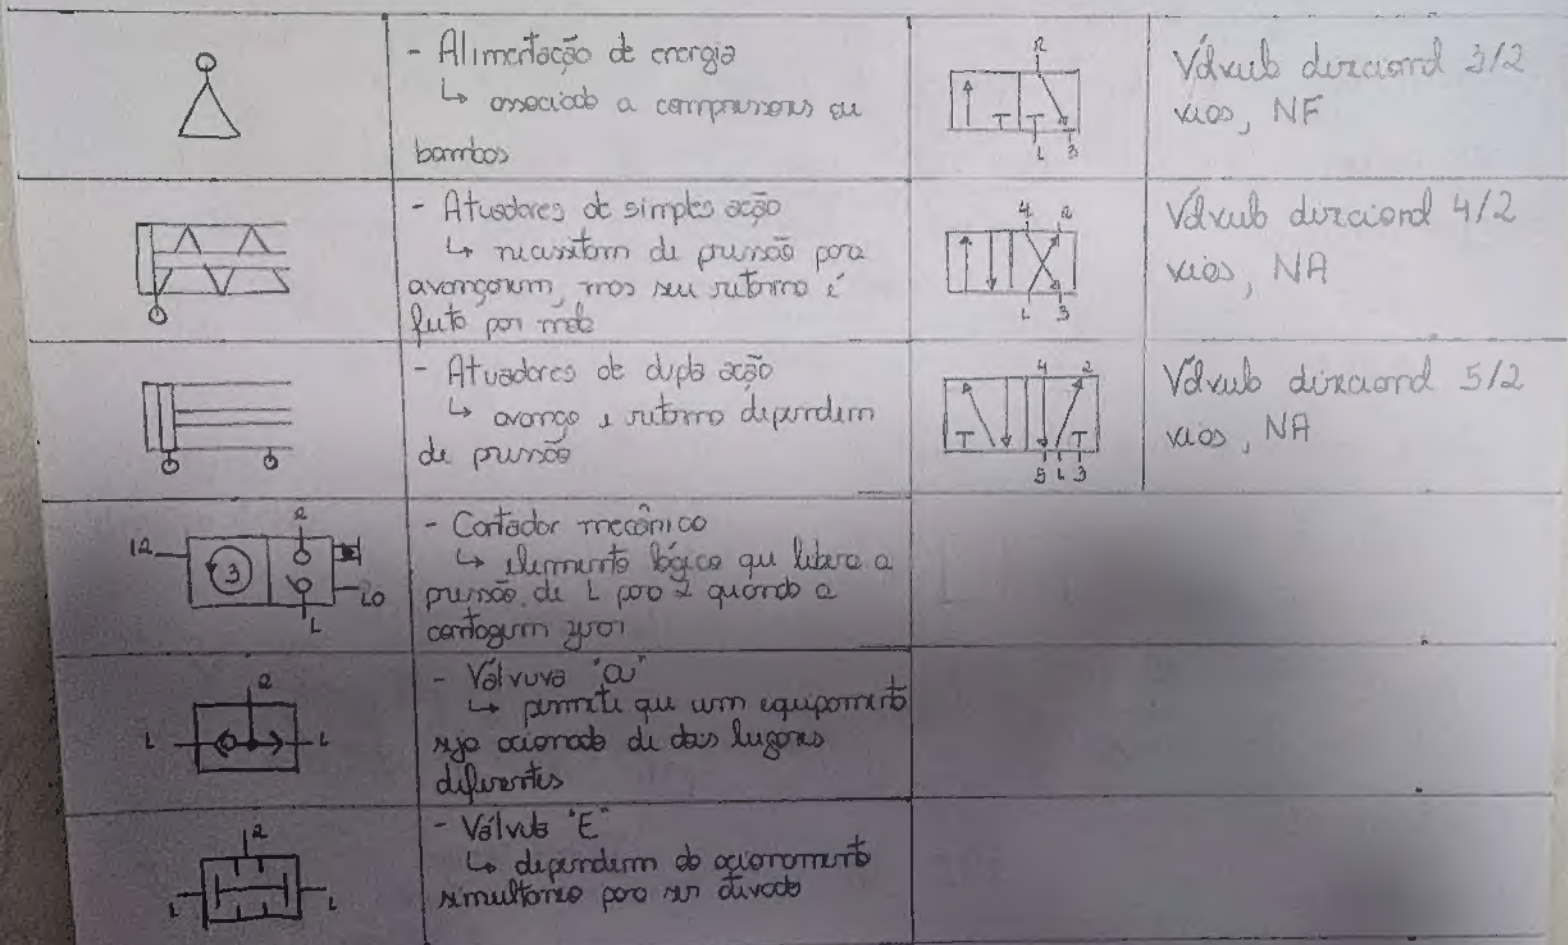 - Alimentação de energia
↳ associado a compressores ou
bombas
2
1 3
Válvula direcional 3/2
vias, NF
- Atuadores de simples ação
↳ necessitam de pressão para
avançarem, mas seu retorno é
feito por mola
4 2
1 3
Válvula direcional 4/2
vias, NA
- Atuadores de dupla ação
↳ avanço e retorno dependem
de pressão
4 2
5 1 3
Válvula direcional 5/2
vias, NA
2
12
3
10
1
- Contador mecânico
↳ elemento lógico que libera a
pressão de 1 para 2 quando a
contagem zerar
2
1 1
- Válvuva "OU"
↳ permite que um equipamento
seja acionado de dois lugares
diferentes
2
1 1
- Válvula "E"
↳ dependem do acionamento
simultâneo para ser ativado